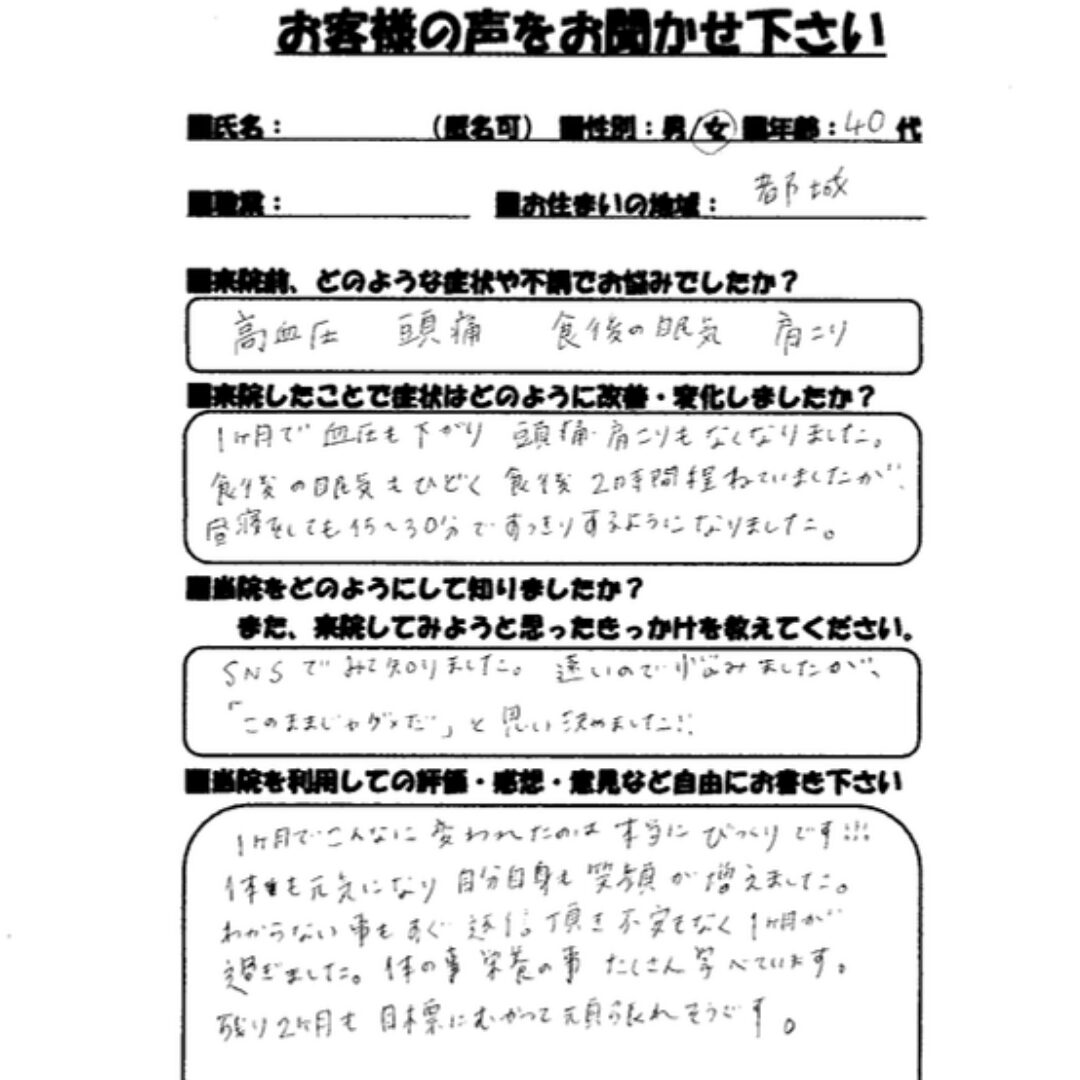 お客様の声をお聞かせ下さい
■氏名：　（匿名可）　■性別：男/女　■年齢：40代
■職業：　■お住まいの地域：都城
■来院前、どのような症状や不調でお悩みでしたか？
高血圧　頭痛　食後の眠気　肩こり
■来院したことで症状はどのように改善・変化しましたか？
1ヶ月で血圧も下がり　頭痛・肩こりもなくなりました。
食後の眠気もひどく　食後2時間程ねていましたが、
昼寝をしても15〜30分ですっきりするようになりました。
■当院をどのようにして知りましたか？
また、来院してみようと思ったきっかけを教えてください。
SNSでみて知りました。遠いので悩みましたが、
「このままじゃダメだ」と思い決めました!!
■当院を利用しての評価・感想・意見など自由にお書き下さい
1ヶ月でこんなに変われたのは本当にびっくりです!!!
体も元気になり自分自身も笑顔が増えました。
わからない事もすぐ返信頂き不安もなく1ヶ月が
過ぎました。体の事栄養の事たくさん学べています。
残り2ヶ月も目標にむかって頑張れそうです。